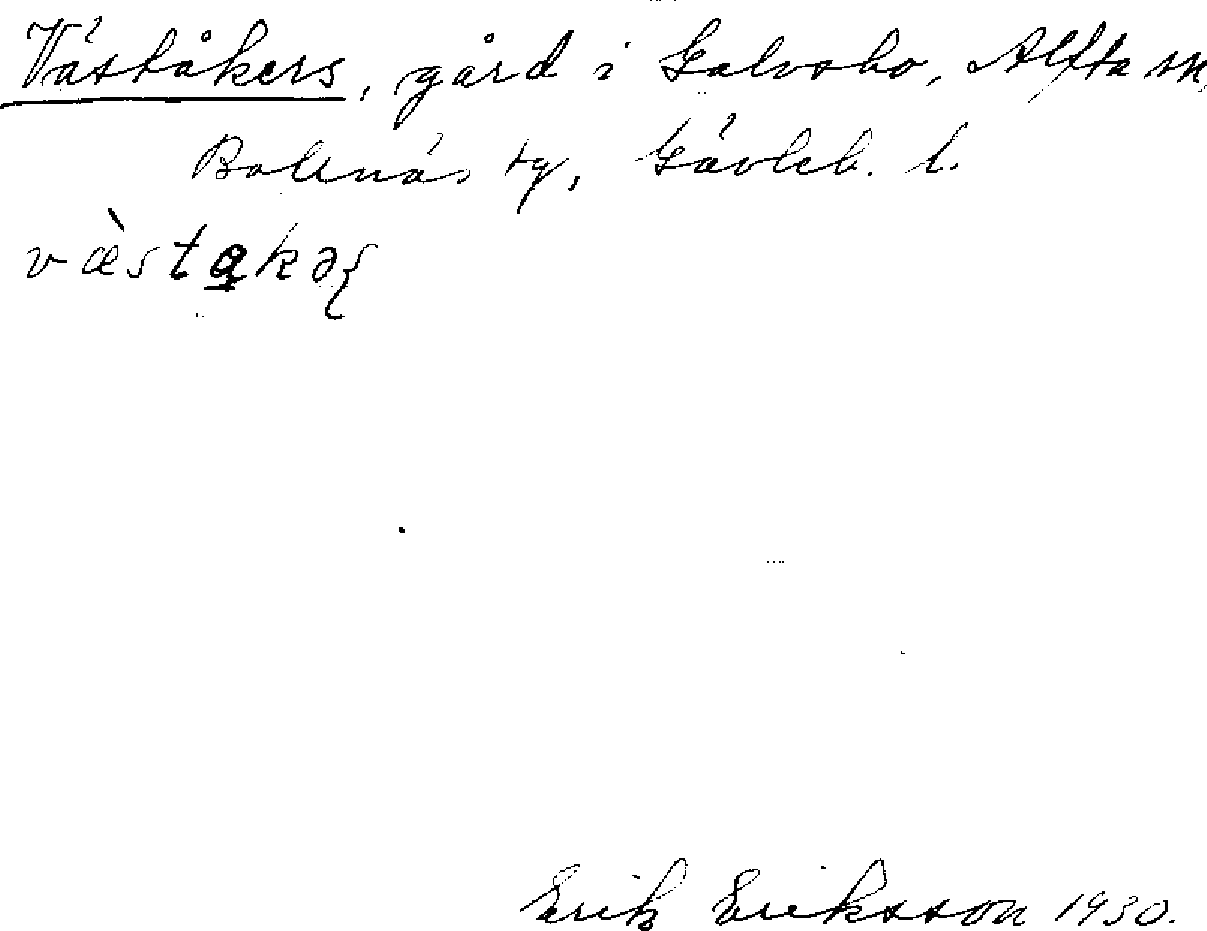 Väståkers, gård i Galvsbo, Alfta sn,
Bollnäs tg, Gävleb. l.
væ̀stakəʂ
Erik Eriksson 1930.